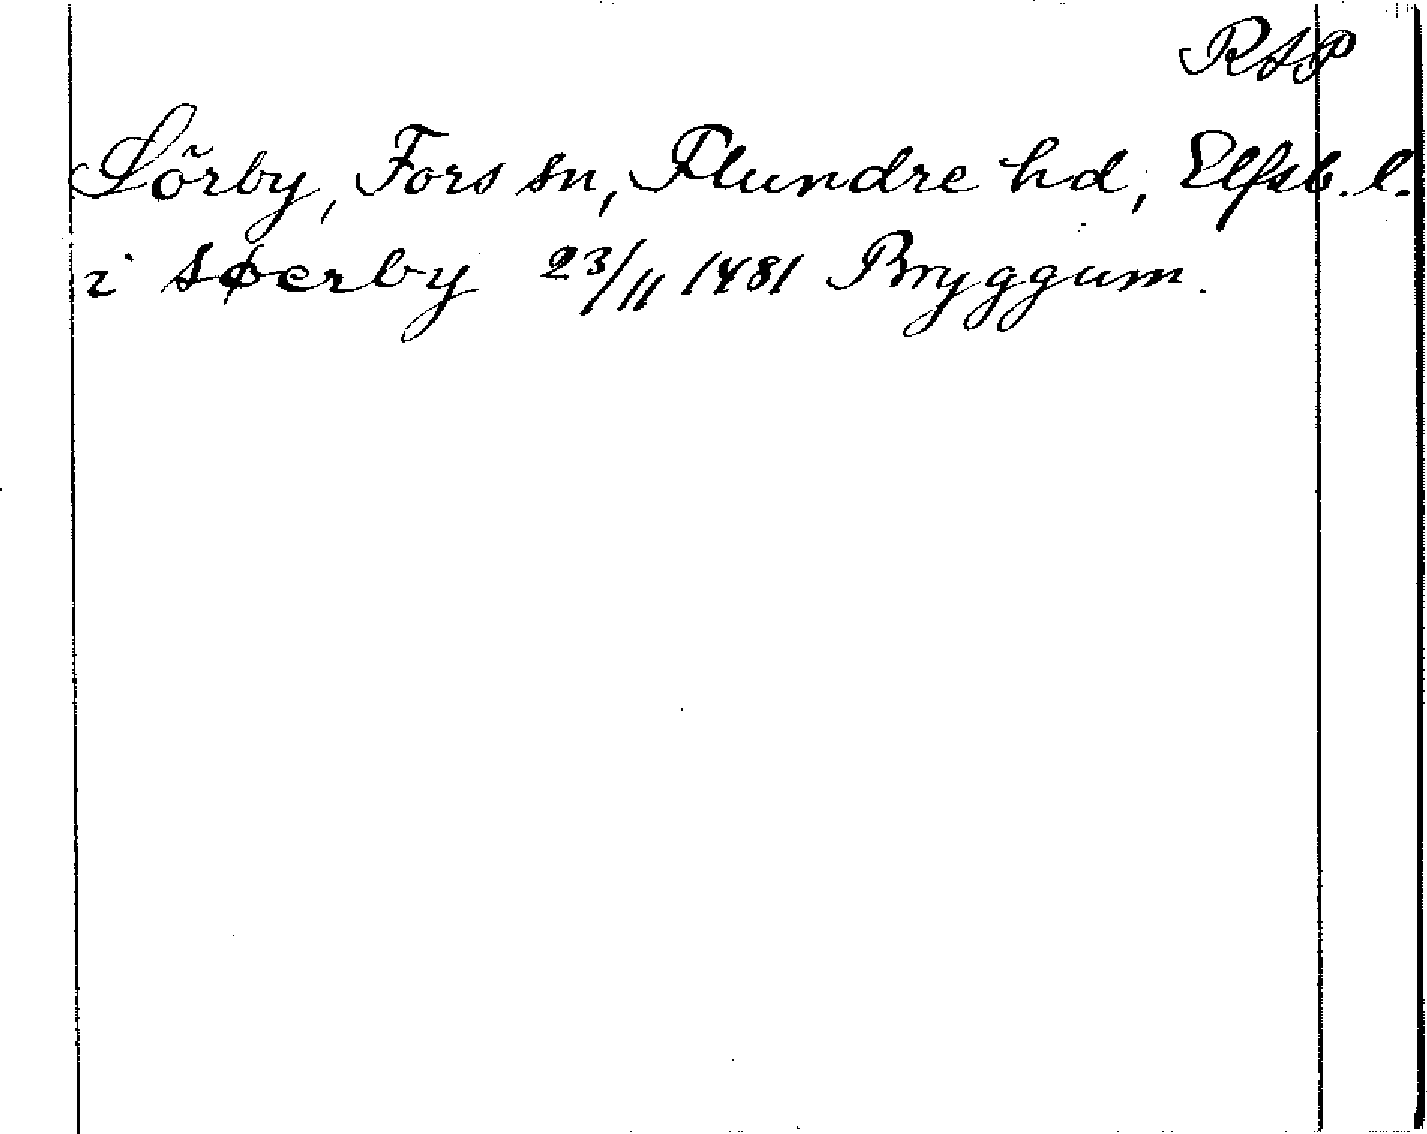 RAP
Sörby, Fors sn, Flundre hd, Elfsb. l.
i søerby 23/11 1481 Bryggum.